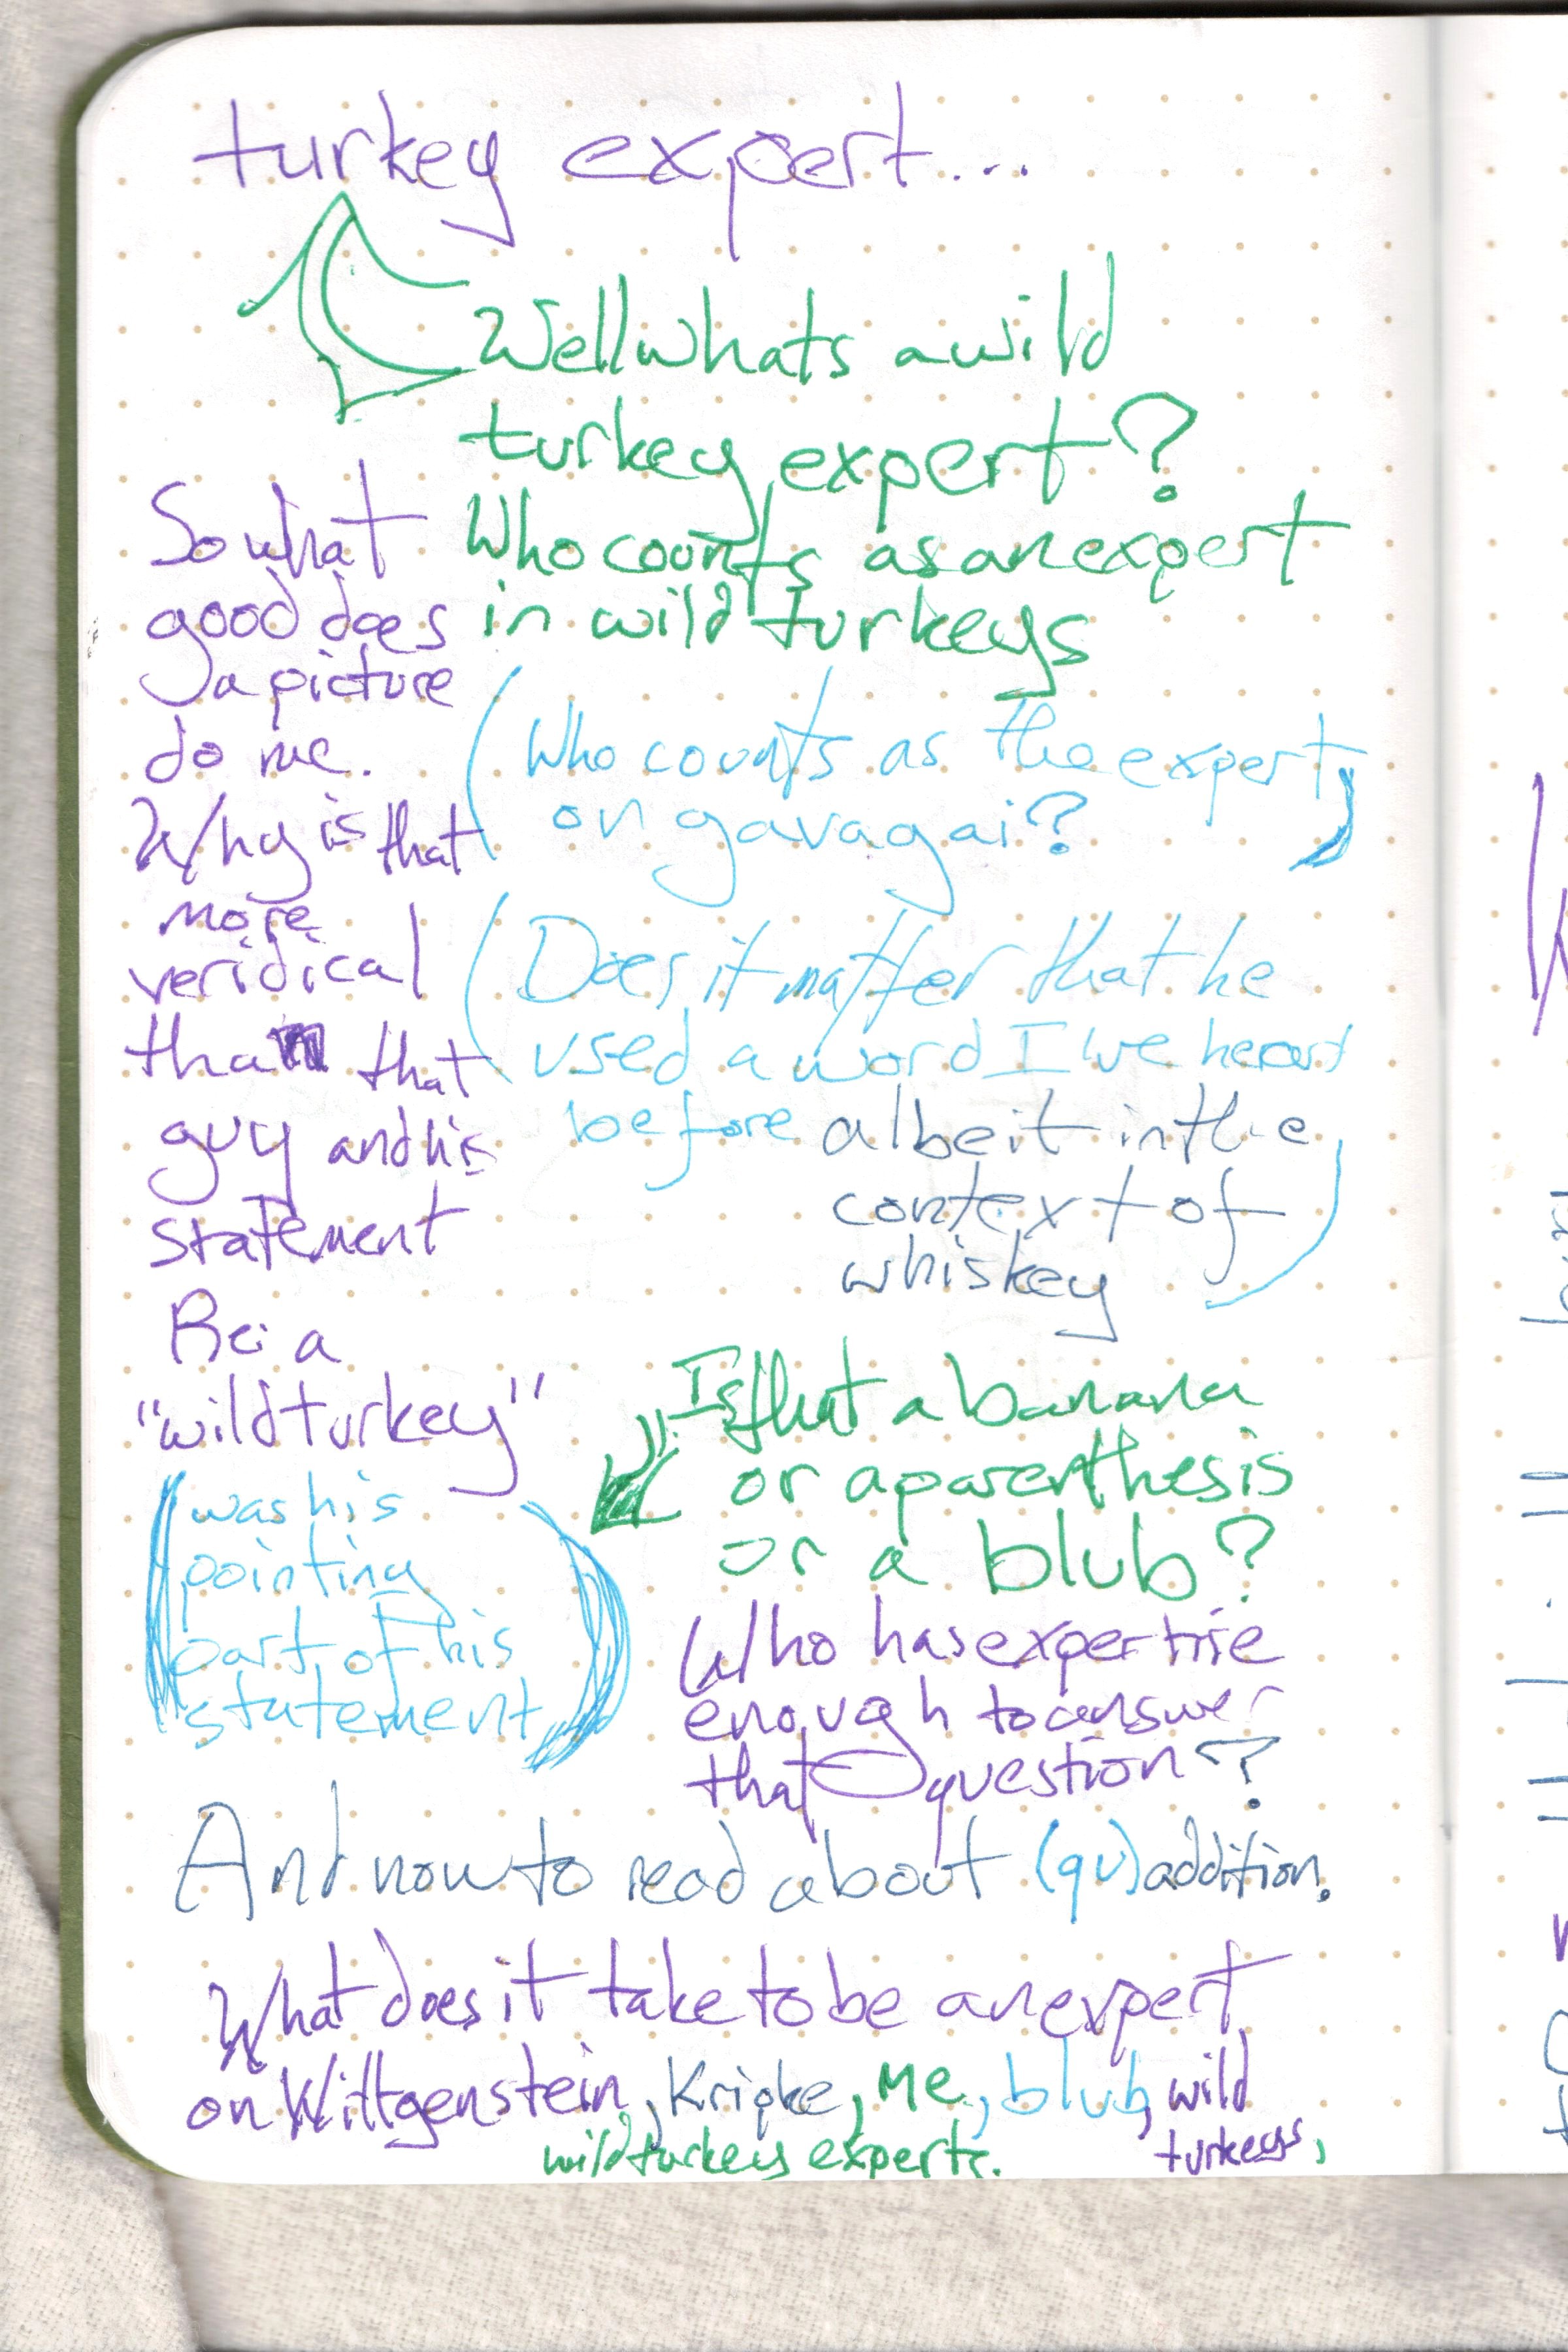 turkey expert...
Well whats a wild
turkey expert?
Who counts as an expert
in wild turkeys
(Who counts as the expert
on gavagai?)
(Does it matter that he
used a word I've heard
before albeit in the
context of
whiskey)
So what
good does
a picture
do me.
Why is that
more
veridical
than that
guy and his
statement
Re: a
"wild turkey"
(was his
pointing
part of his
statement)
Is that a banana
or a parenthesis
or a blub?
Who has expertise
enough to answer
that question?
And now to read about (qu)addition.
What does it take to be an expert
on Wittgenstein, Kripke, Me, blub, wild
turkeys,
wild turkeys experts.